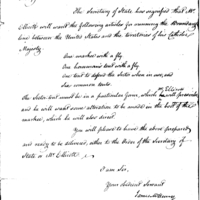 The Secretary of State has signified that Mr.
Ellicott will want the following articles for running the Boundary
line between the United States and the territories of his Catholic
Majesty.
One markee with a fly
One horseman's tent with a fly
One tent to defend the Sector when in use, and
Six common tents.
The Sector tent must be in a particular form, which Mr. Ellicott will prescribe
and he will want some alteration to be made in the
markee, which he will also direct.
You will please to have the above prepared
and ready to be delivered, either to the Order of the Secretary of
State or Mr. Ellicott.
I am Sir,
Your obedient Servant